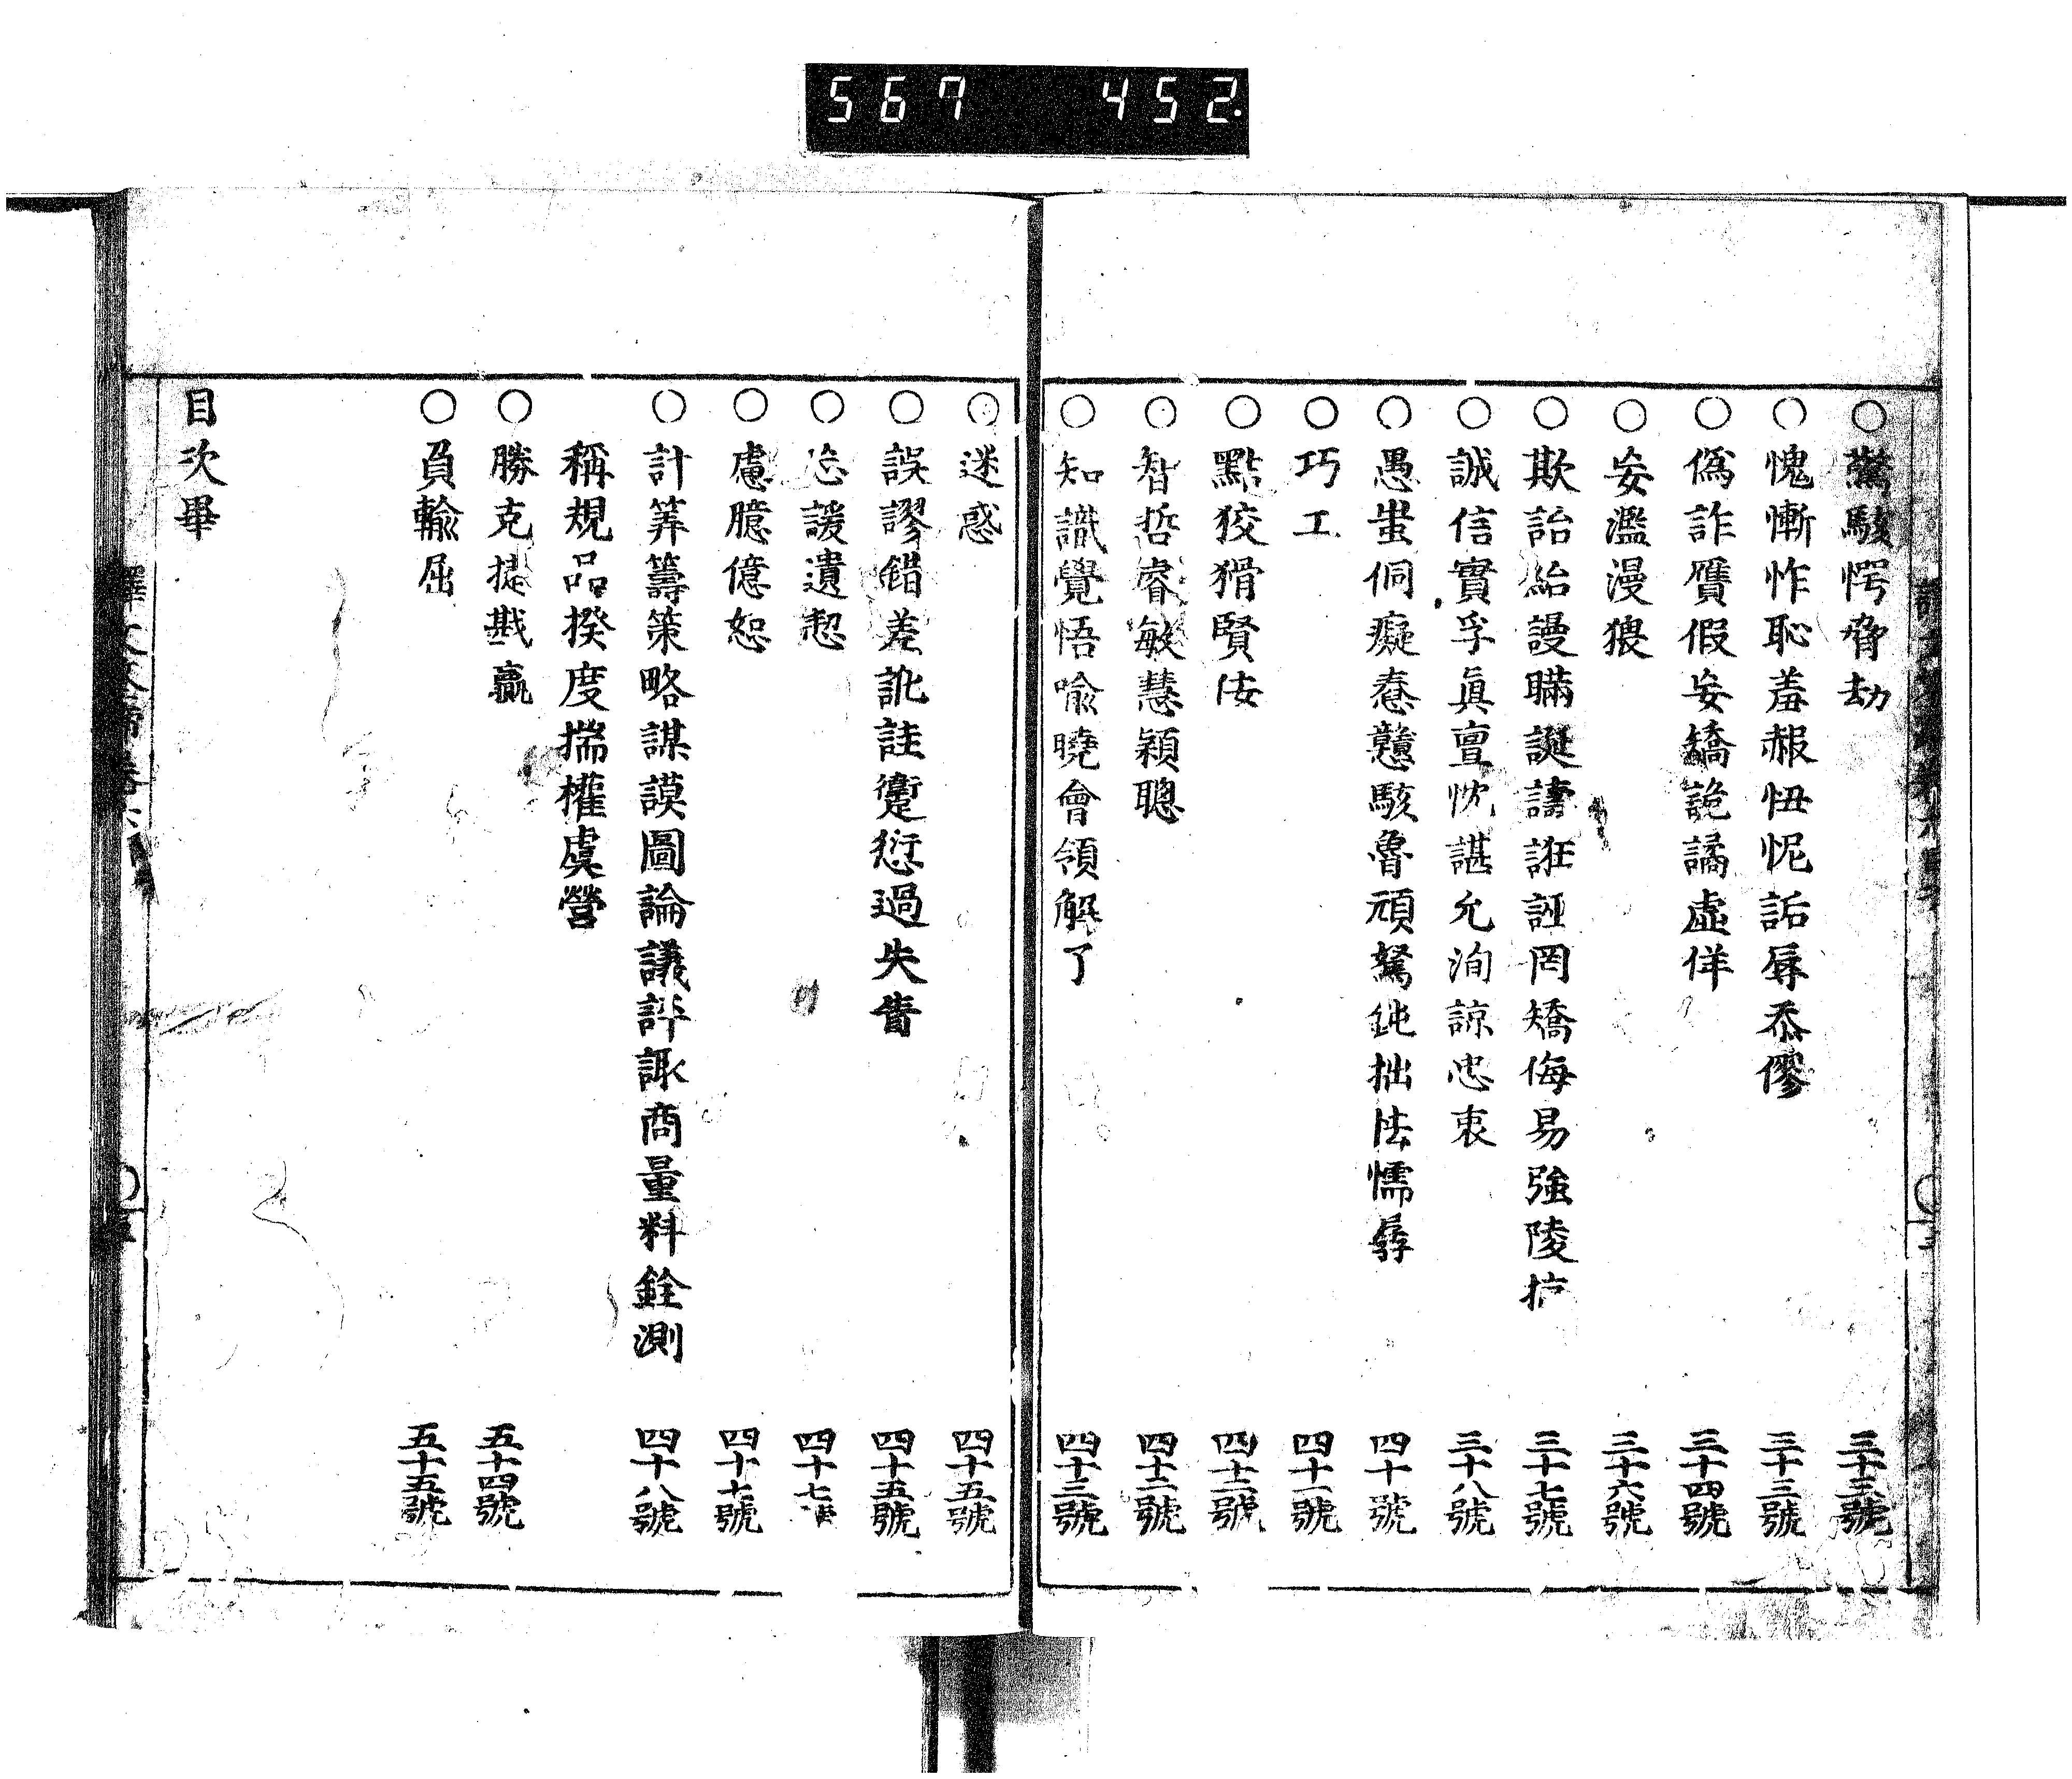 567 452.
○驚駭愕脅劫 三十三號
○愧慚怍恥羞赧忸怩詬辱忝僇 三十三號
○偽詐贋假妄矯詭譎虛佯 三十四號
○妄濫漫猥 三十六號
○欺詒紿謾瞞誕譸誑誣罔矯侮易強陵 三十七號
○誠信實孚眞亶忱諶允洵諒忠衷 三十八號
○愚蚩侗癡惷戇騃魯頑駑鈍拙怯懦孱 四十號
○巧工 四十一號
○點狡猾賢佞 四十二號
○智哲睿敏慧穎聰 四十二號
○知識覺悟喻曉會領解了 四十三號
○迷惑 四十五號
○誤謬錯差訛註躗愆過失眚 四十五號
○忘諼遺愸 四十七
○慮臆億恕 四十七號
○計筭籌策略謀謨圖論議評諏商量料銓測 四十八號
稱規品揆度揣權虞營
○勝克捷戡贏 五十四號
○負輸屈 五十五號
目次畢